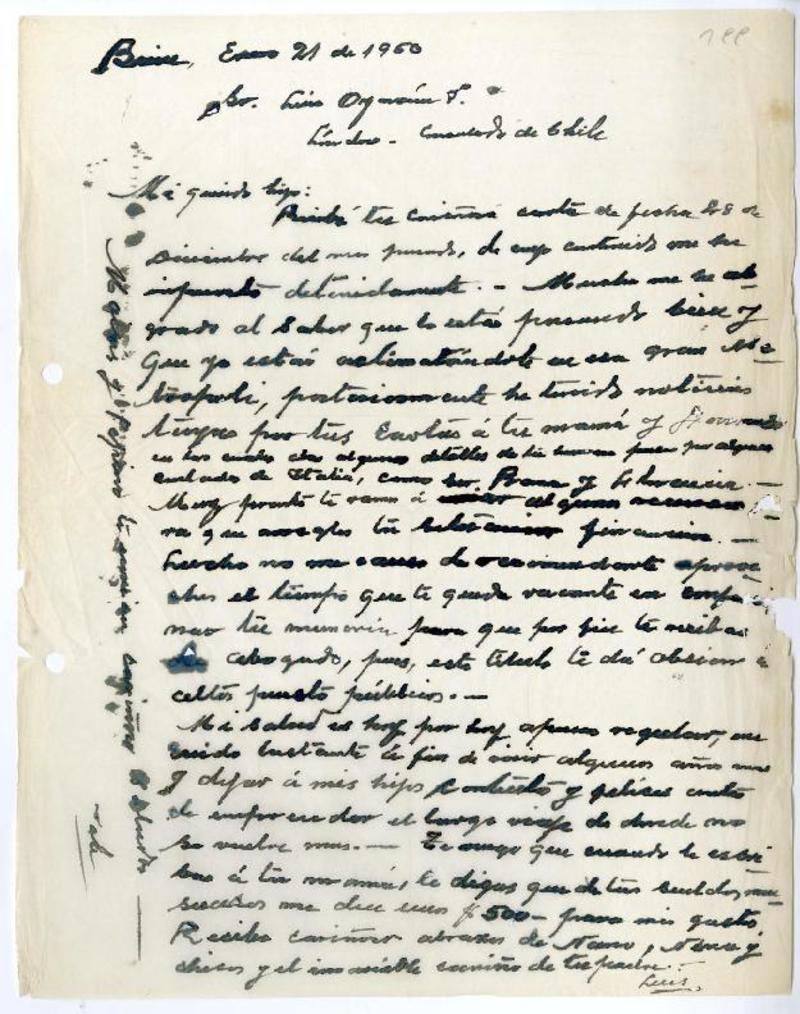 Enero 21 de 1960
Sr. Luis Oyarzún P.
Londres - Consulado de Chile
Mi querido hijo:
Recibí tu cariñosa carta de fecha 28 de
Diciembre del mes pasado, de cuyo contenido me he
impuesto detenidamente. - Mucho me ha a-
grado al saber que lo estás pasando bien y
que ya estás aclimatándote en esa gran Me-
trópoli, posteriormente he tenido noticias
tuyas por tus cartas á tu mamá y
en las cuales das algunos detalles de tu por algunas
ciudades de Italia, como Roma y Florencia. -
Muy pronto te vamos á algunos
ra que arregles tu situación financiera. -
Lucho no me canso de recomendarte aprove-
ches el tiempo que te queda vacante en
nar tu memoria para que por fin te recibas
de abogado, pues, este título te dá opción a
altos puestos públicos. -
Mi salud es hoy por hoy apenas regular, me
cuido bastante á fin de vivir algunos años mas
y dejar á mis hijos contentos y felices antes
de emprender el largo viaje de donde no
se vuelve mas. - Te ruego que cuando le escri-
bas á tu mamá, le digas que de tus sueldos
me dé unos $500 - para mis gastos
Recibe cariñosos abrazos de Nano, Nena y
chicos y el invariable cariño de tu padre. -
Luis.
y te envian cariñosos saludos
Vale